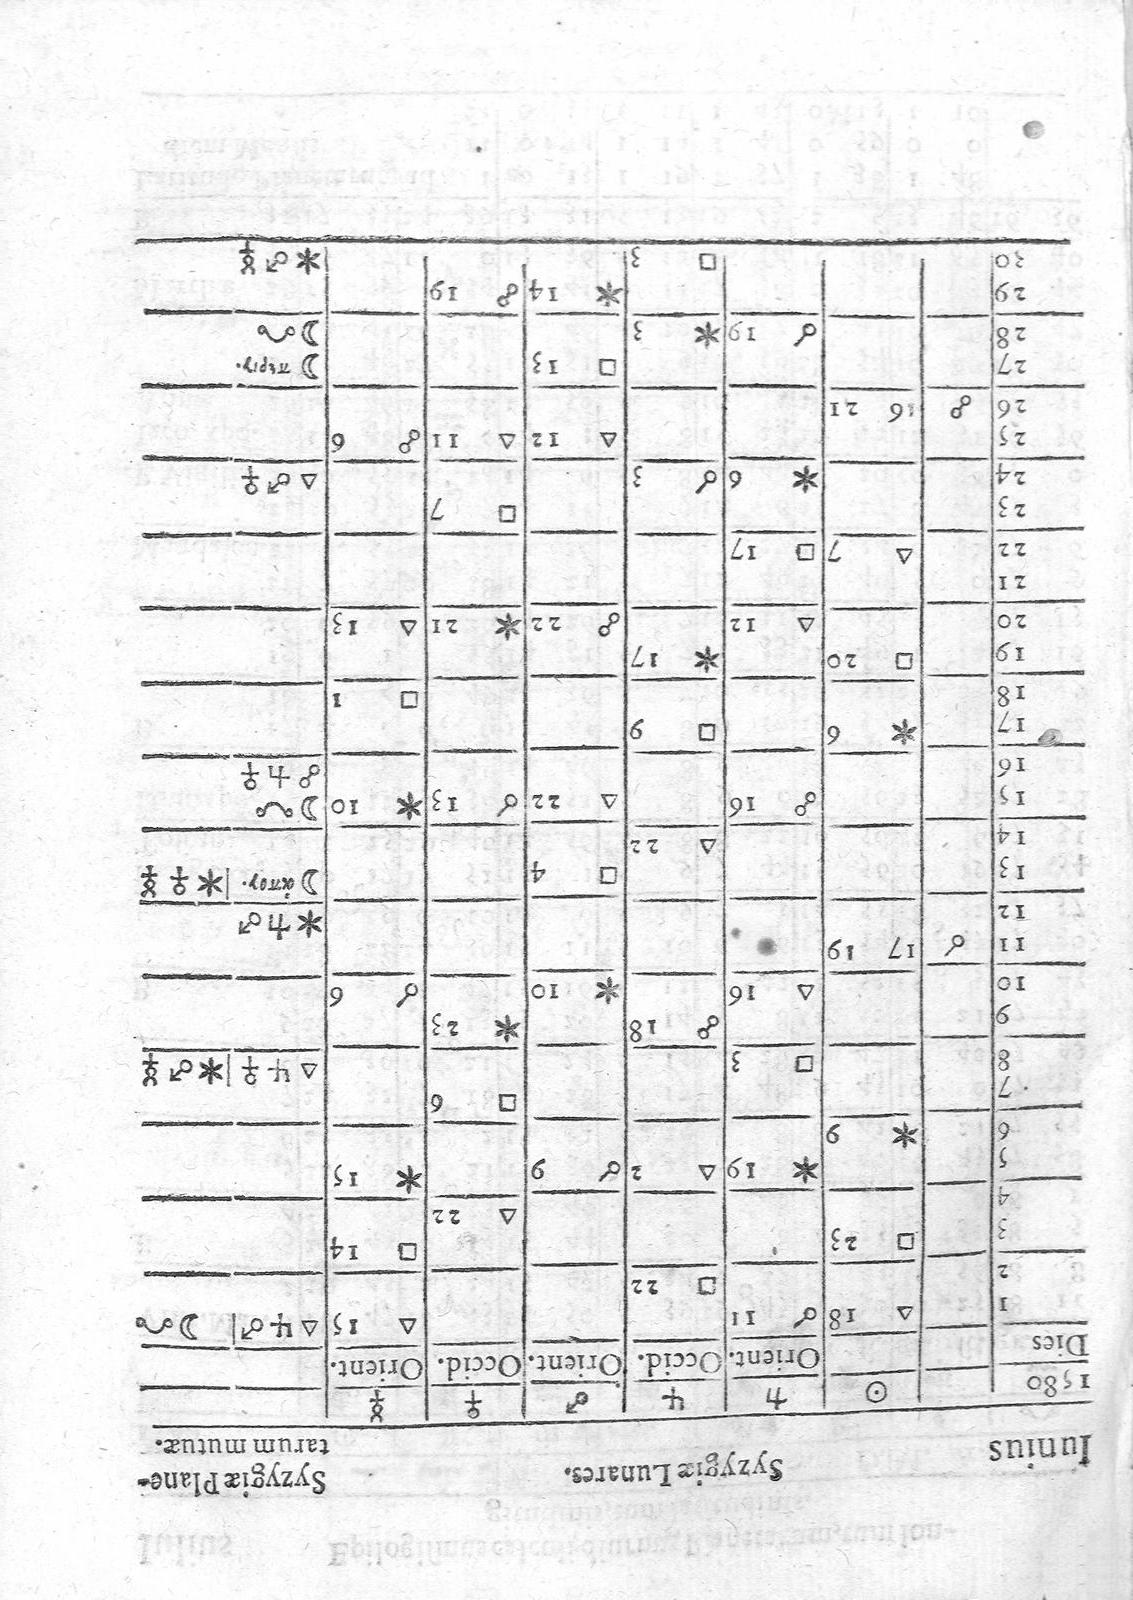 Iunius Syzygiæ Lunares. Syzygiæ Plane-
tarum mutuæ.
1580 ☉ ♄ ♃ ♂ ♀ ☿
Dies Orient. Occid. Orient. Occid. Orient.
1 △ 18 ☌ 11 △ 15 △ ♃ ♂ ☽
2 □ 22
3 □ 23 △ 22 □ 14
4
5 ⚹ 19 △ 2 ☌ 9 ⚹ 15
6 ⚹ 9
7 □ 6
8 □ 3 △ ♃ ♀ ⚹ ♂ ☿
9 ☍ 18 ⚹ 23
10 △ 16 ⚹ 10 ☌ 6
11 ☌ 17 19
12 ⚹ ♄ ♂
13 □ 4 ☽ ἀπογ. ⚹ ♀ ☿
14 △ 22
15 ☍ 16 △ 22 ☌ 13 ⚹ 10 ☽
16 ☍ ♄ ♀
17 ⚹ 6 □ 9
18 □ 1
19 □ 20 ⚹ 17
20 △ 12 ☍ 22 ⚹ 21 △ 13
21
22 △ 7 □ 17
23 □ 7
24 ⚹ 6 ☌ 3 △ ♂ ♀
25 △ 12 △ 11 ☍ 6
26 ☍ 16 21
27 □ 13 ☽ περιγ.
28 ☌ 19 ⚹ 3 ☽
29 ⚹ 14 ☍ 19
30 □ 3 ⚹ ♂ ☿